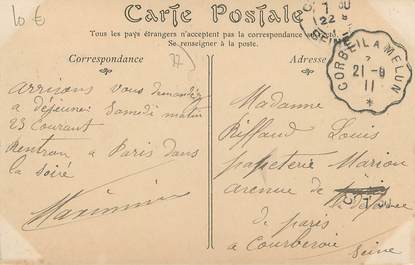 10 €
Carte Postale
Tous les pays étrangers n'acceptent pas la correspondance au recto.
Se renseigner à la poste.
Correspondance
77
arrivons vous demander
a déjeuner Samedi matin
23 Courant
Rentrons a Paris dans
la soirée
Maximin
7
22
SEINE
CORBEIL A MELUN
21-9
11
Adresse
Madame
Riffaud Louis
papeterie Marion
avenue de
de paris
a Courbevoie
Seine